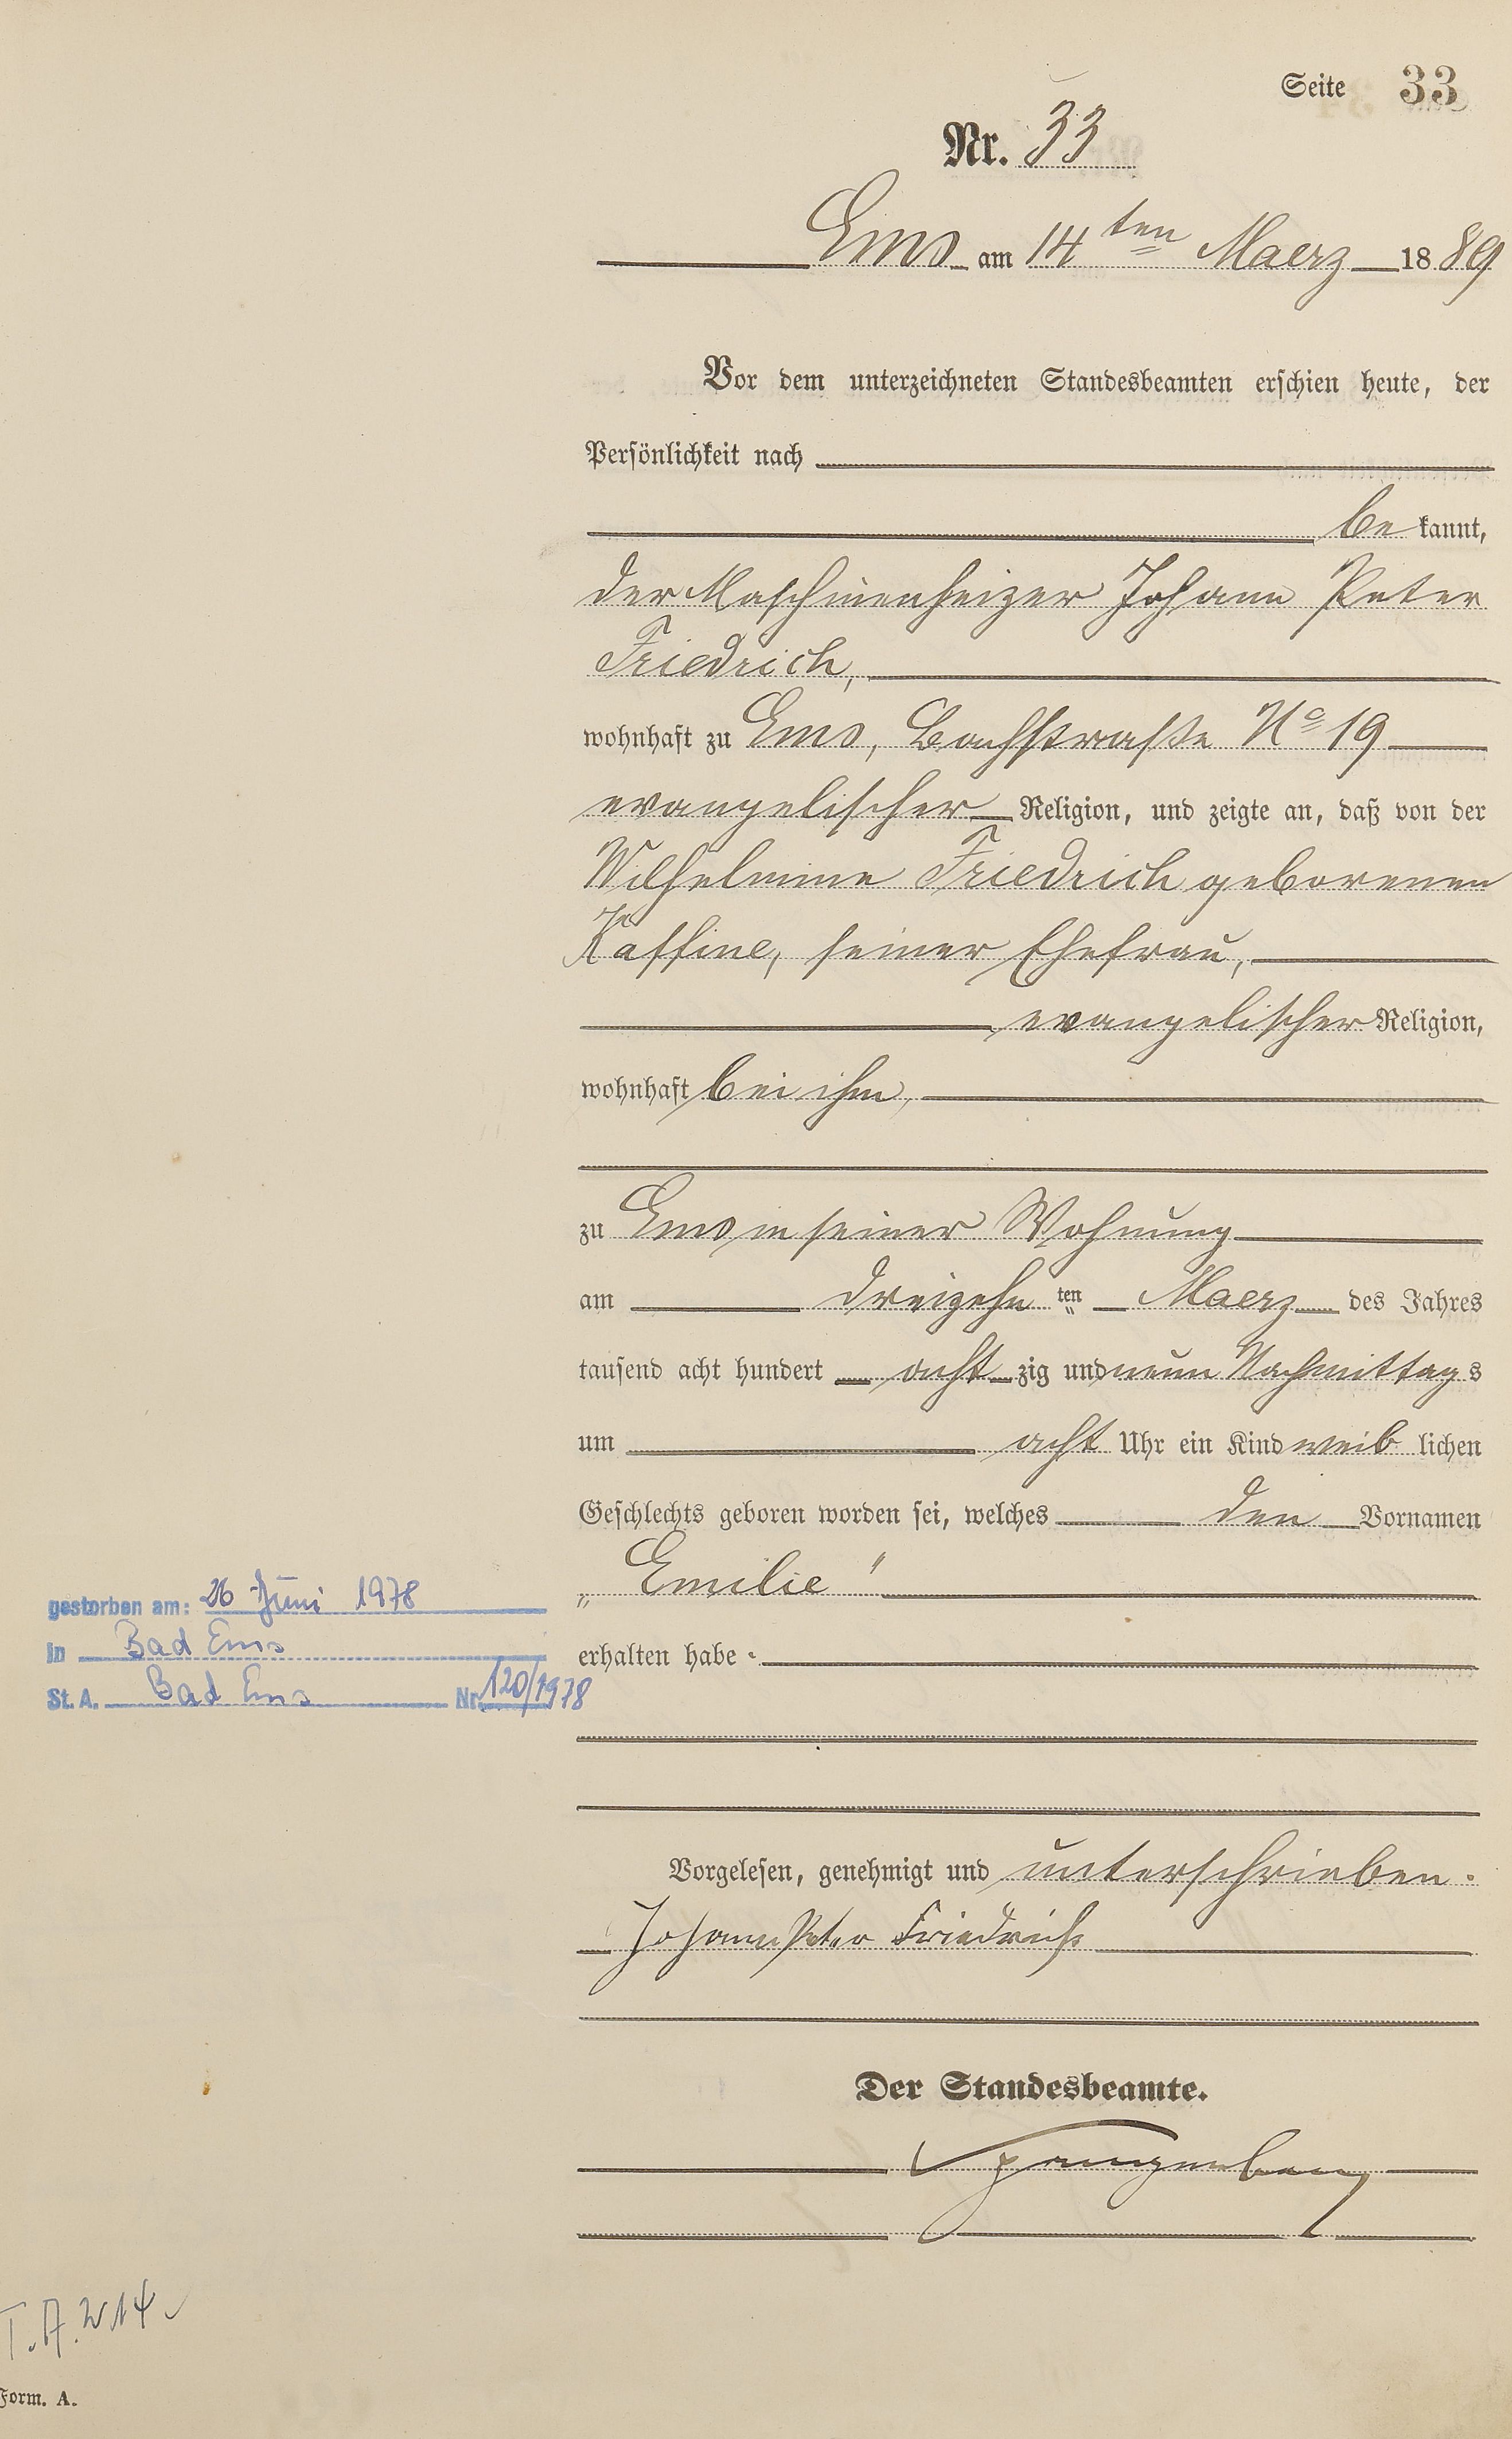 Seite 33
Nr. 33
Ems am 14ten Maerz 1889
Vor dem unterzeichneten Standesbeamten erschien heute, der
Persönlichkeit nach
be kannt,
der Maschinenheizer Johann Peter
Friedrich,
wohnhaft zu Ems, Bachstraße No 19
evangelischer Religion, und zeigte an, daß von der
Wilhelmine Friedrich geborenen
Kaffine, seiner Ehefrau,
evangelischer Religion,
wohnhaft bei ihm,
zu Ems in seiner Wohnung
am dreizehn ten Maerz des Jahres
tausend acht hundert acht zig und neun Nachmittags
um acht Uhr ein Kind weib lichen
Geschlechts geboren worden sei, welches den Vornamen
„Emilie"
gestorben am: 26 Juni 1978
in Bad Ems
erhalten habe.
St. A. Bad Ems Nr. 120/1978
Vorgelesen, genehmigt und unterschrieben.
Johann Peter Friedrich
Der Standesbeamte.
Spangenberg
T.A. 214
Form. A.